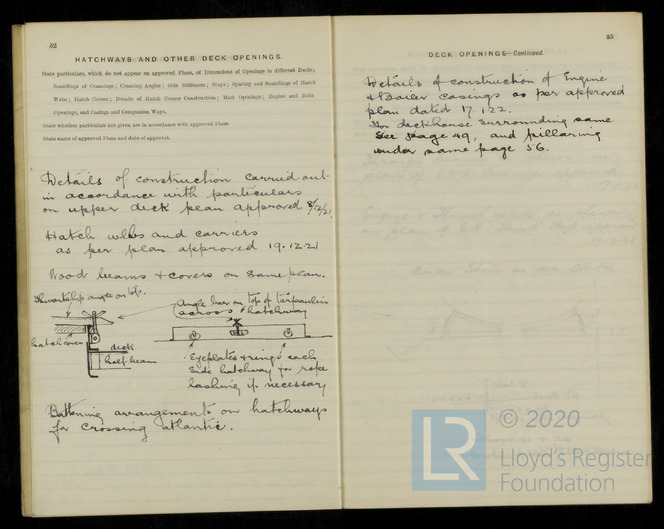 52
HATCHWAYS AND OTHER DECK OPENINGS.
State particulars, which do not appear on approved Plans, of Dimensions of Openings in different Decks;
Scantlings of Coamings; Coaming Angles; Side Stiffeners; Stays; Spacing and Scantlings of Hatch
Webs; Hatch Covers; Details of Hatch Corner Construction; Mast Openings; Engine and Boiler
Openings, and Casings and Companion Ways.
State whether particulars not given are in accordance with approved Plans.
State names of approved Plans and dates of approval.
Details of construction carried out
in accordance with particulars
on upper deck plan approved 8/12/21
Hatch webs and carriers
as per plan approved 19.12.21
Wood beams & covers on same plan.
Thwartship angle on top.
Angle bar on top of tarpaulin
across hatchway
hatch cover
deck
half beam
Eyeplates & rings each
side hatchway for rope
lashing if necessary
Battening arrangements on hatchways
for crossing atlantic.
53
DECK OPENINGS—Continued.
Details of construction of Engine
& Boiler casings as per approved
plan dated 17.1.22.
For deckhouse surrounding same
See page 49, and pillaring
under same page 56.
LR
© 2020
Lloyd's Register
Foundation